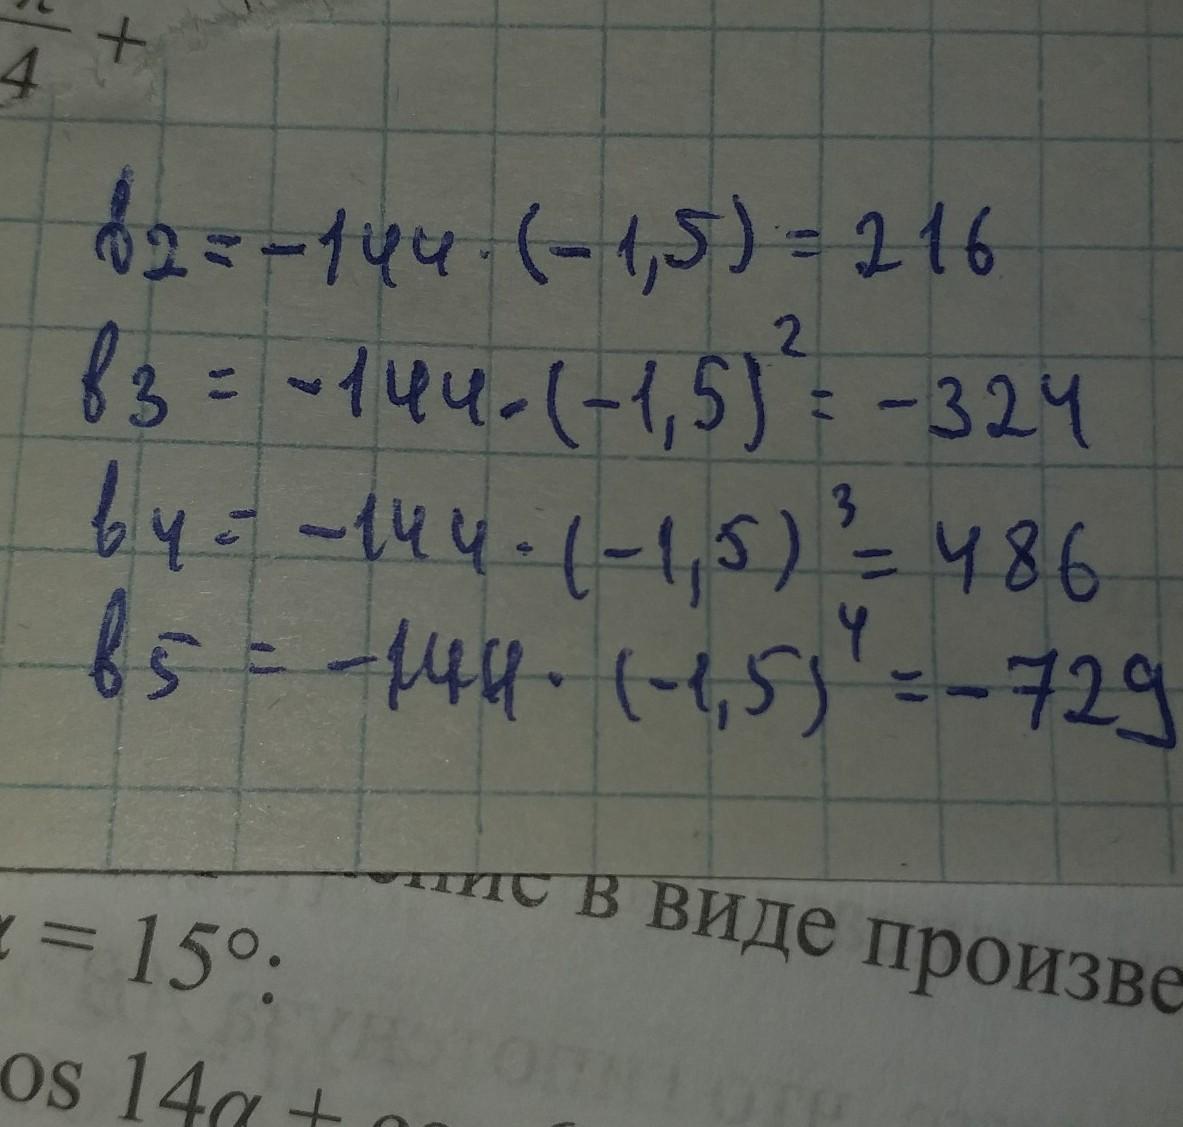 4 +
b2 = -144 · (-1,5) = 216
b3 = -144 · (-1,5)² = -324
b4 = -144 · (-1,5)³ = 486
b5 = -144 · (-1,5)⁴ = -729
в виде произве
= 15°:
os 14α +